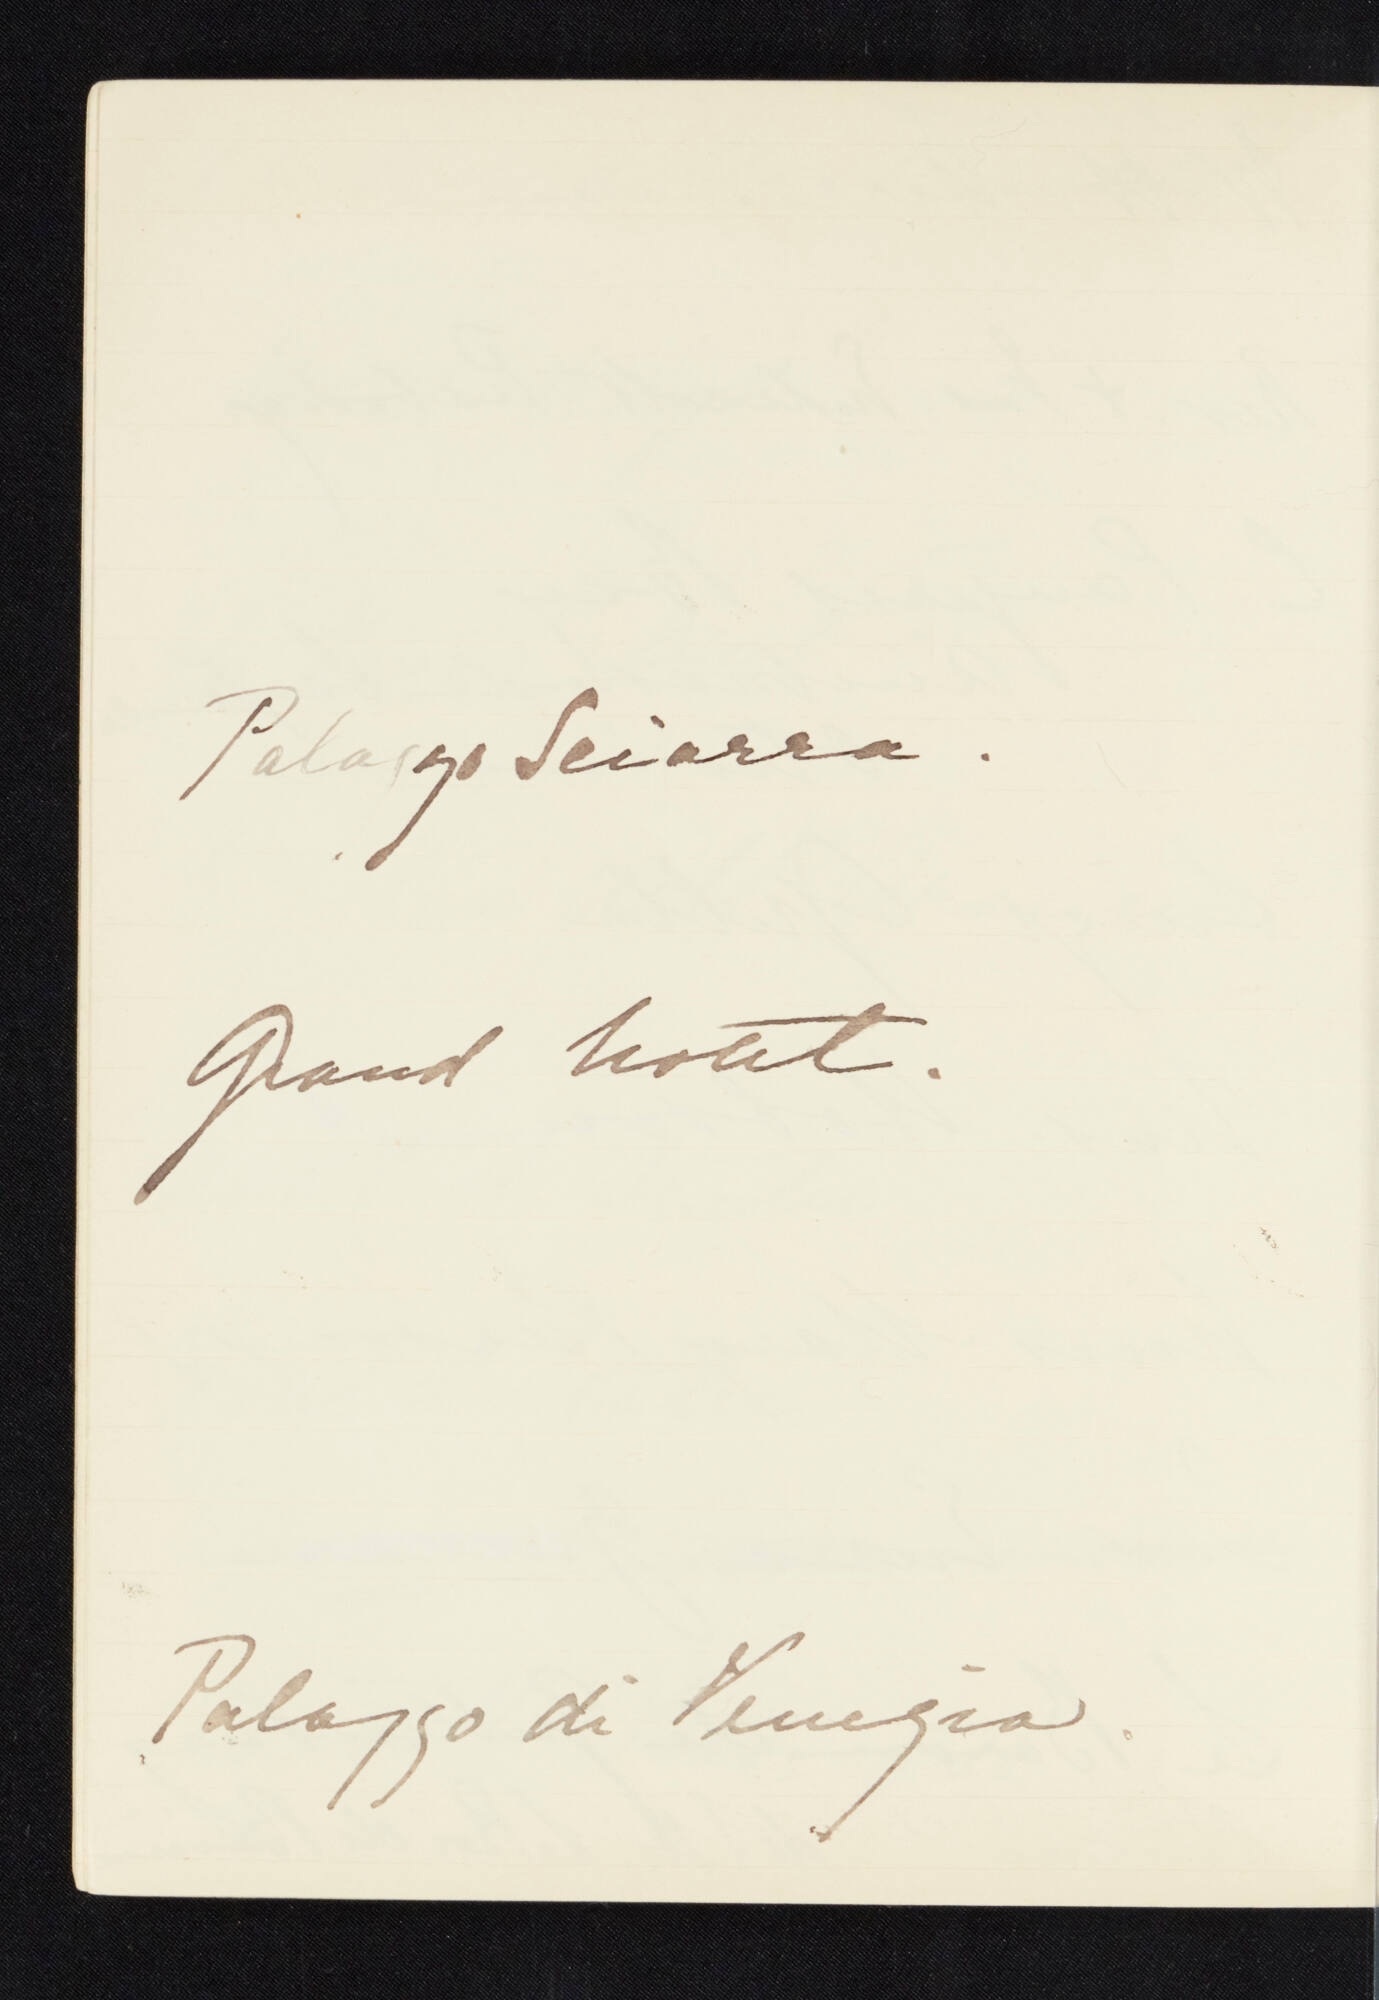 Palazzo Sciarra.
Grand hotel.
Palazzo di Venezia.